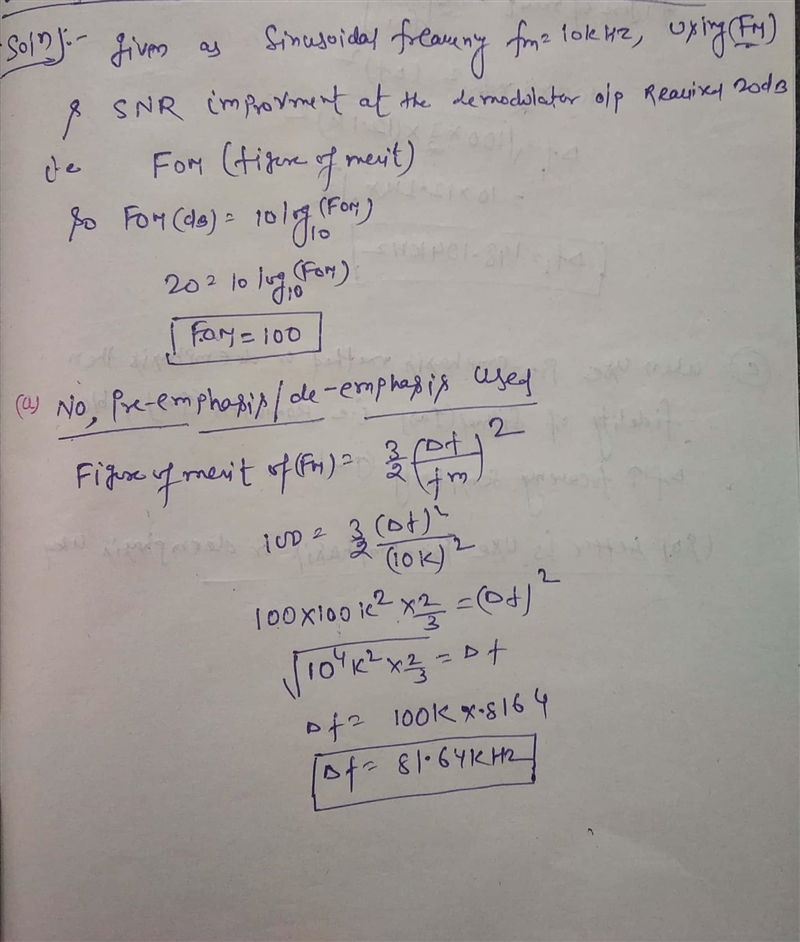 Soln:- Given as Sinusoidal freqeuny fm = 10kHz, using (FM)
& SNR improvment at the demodulator o/p Required 20dB
i.e FOM (figure of merit)
So FOM (dB) = 10 log10 (FOM)
20 = 10 log10 (FOM)
FOM = 100
(a) No, Pre-emphasis / de-emphasis used
Figure of merit of (FM) = 3/2 (Δf/fm)^2
100 = 3/2 (Δf)^2/(10K)^2
100 × 100 K^2 × 2/3 = (Δf)^2
√10^4 K^2 × 2/3 = Δf
Δf = 100K × .8164
Δf = 81.64KHz